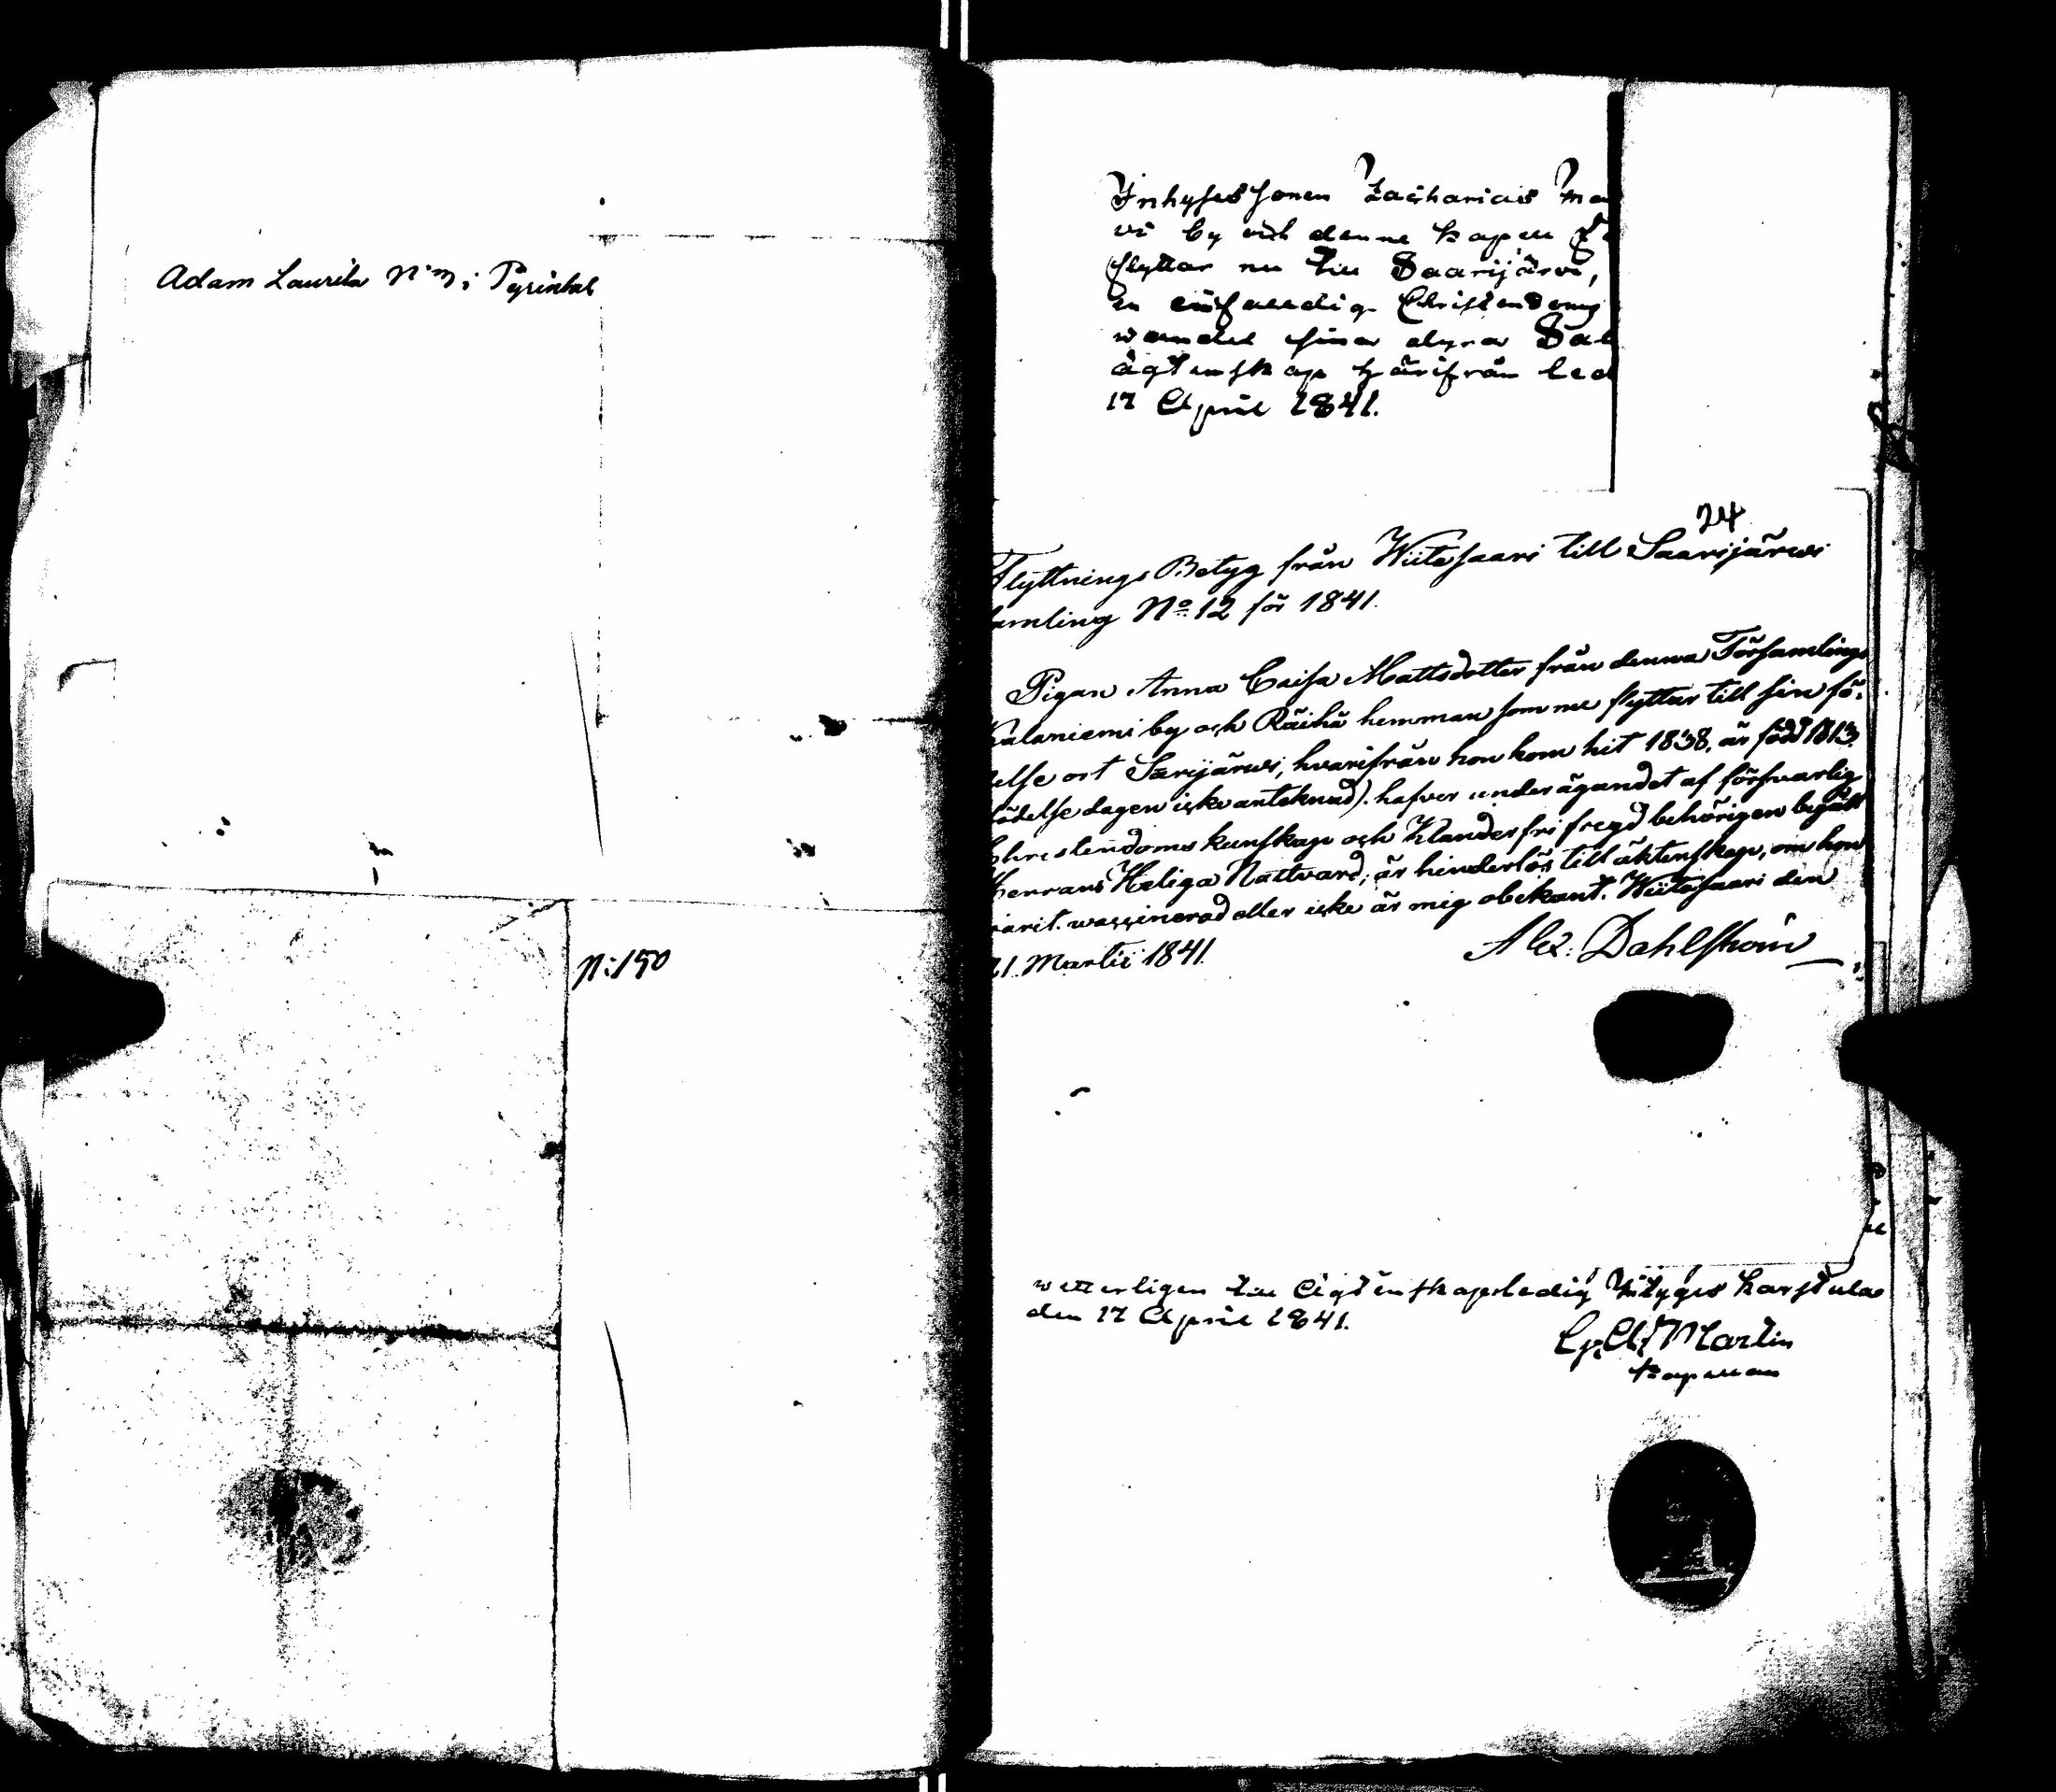 Adam Laurila N:m; Pyrinkal
N:190
Inhyses sonen Zacharias Ma
vi by och denne kapell
flyttar nu till Saarijärvi,
en enfaldig Christendoms
wandel sina dyra Sal
ägtenskap härifrån led
17 April 1841.
24
Flyttnings Betyg från Wiitasaari till Saarijärwi
amling No 12 för 1841.
Pigan Anna Caisa Mattsdotter från denna Församlings
Kalaniemi by och Räihä hemman som nu flyttar till sin fö-
delse ort Sarijärwi, hvarifrån hon kom hit 1838, är född 1813.
födelse dagen icke anteknad). hafver under ägandet af försvarlig
Christendoms kunskap och Klanderfri fregd behörigen begått
Herrans Heliga Nattvard; är hinderlös till äktenskap, om hon
varit waccinerad eller icke är mig obekant. Wiitasaari den
21 Martii 1841. Alex: Dahlström
wetterligen till Ägtenskap ledig bityges Karstula
den 17 April 1841.
Martin
Kapellan